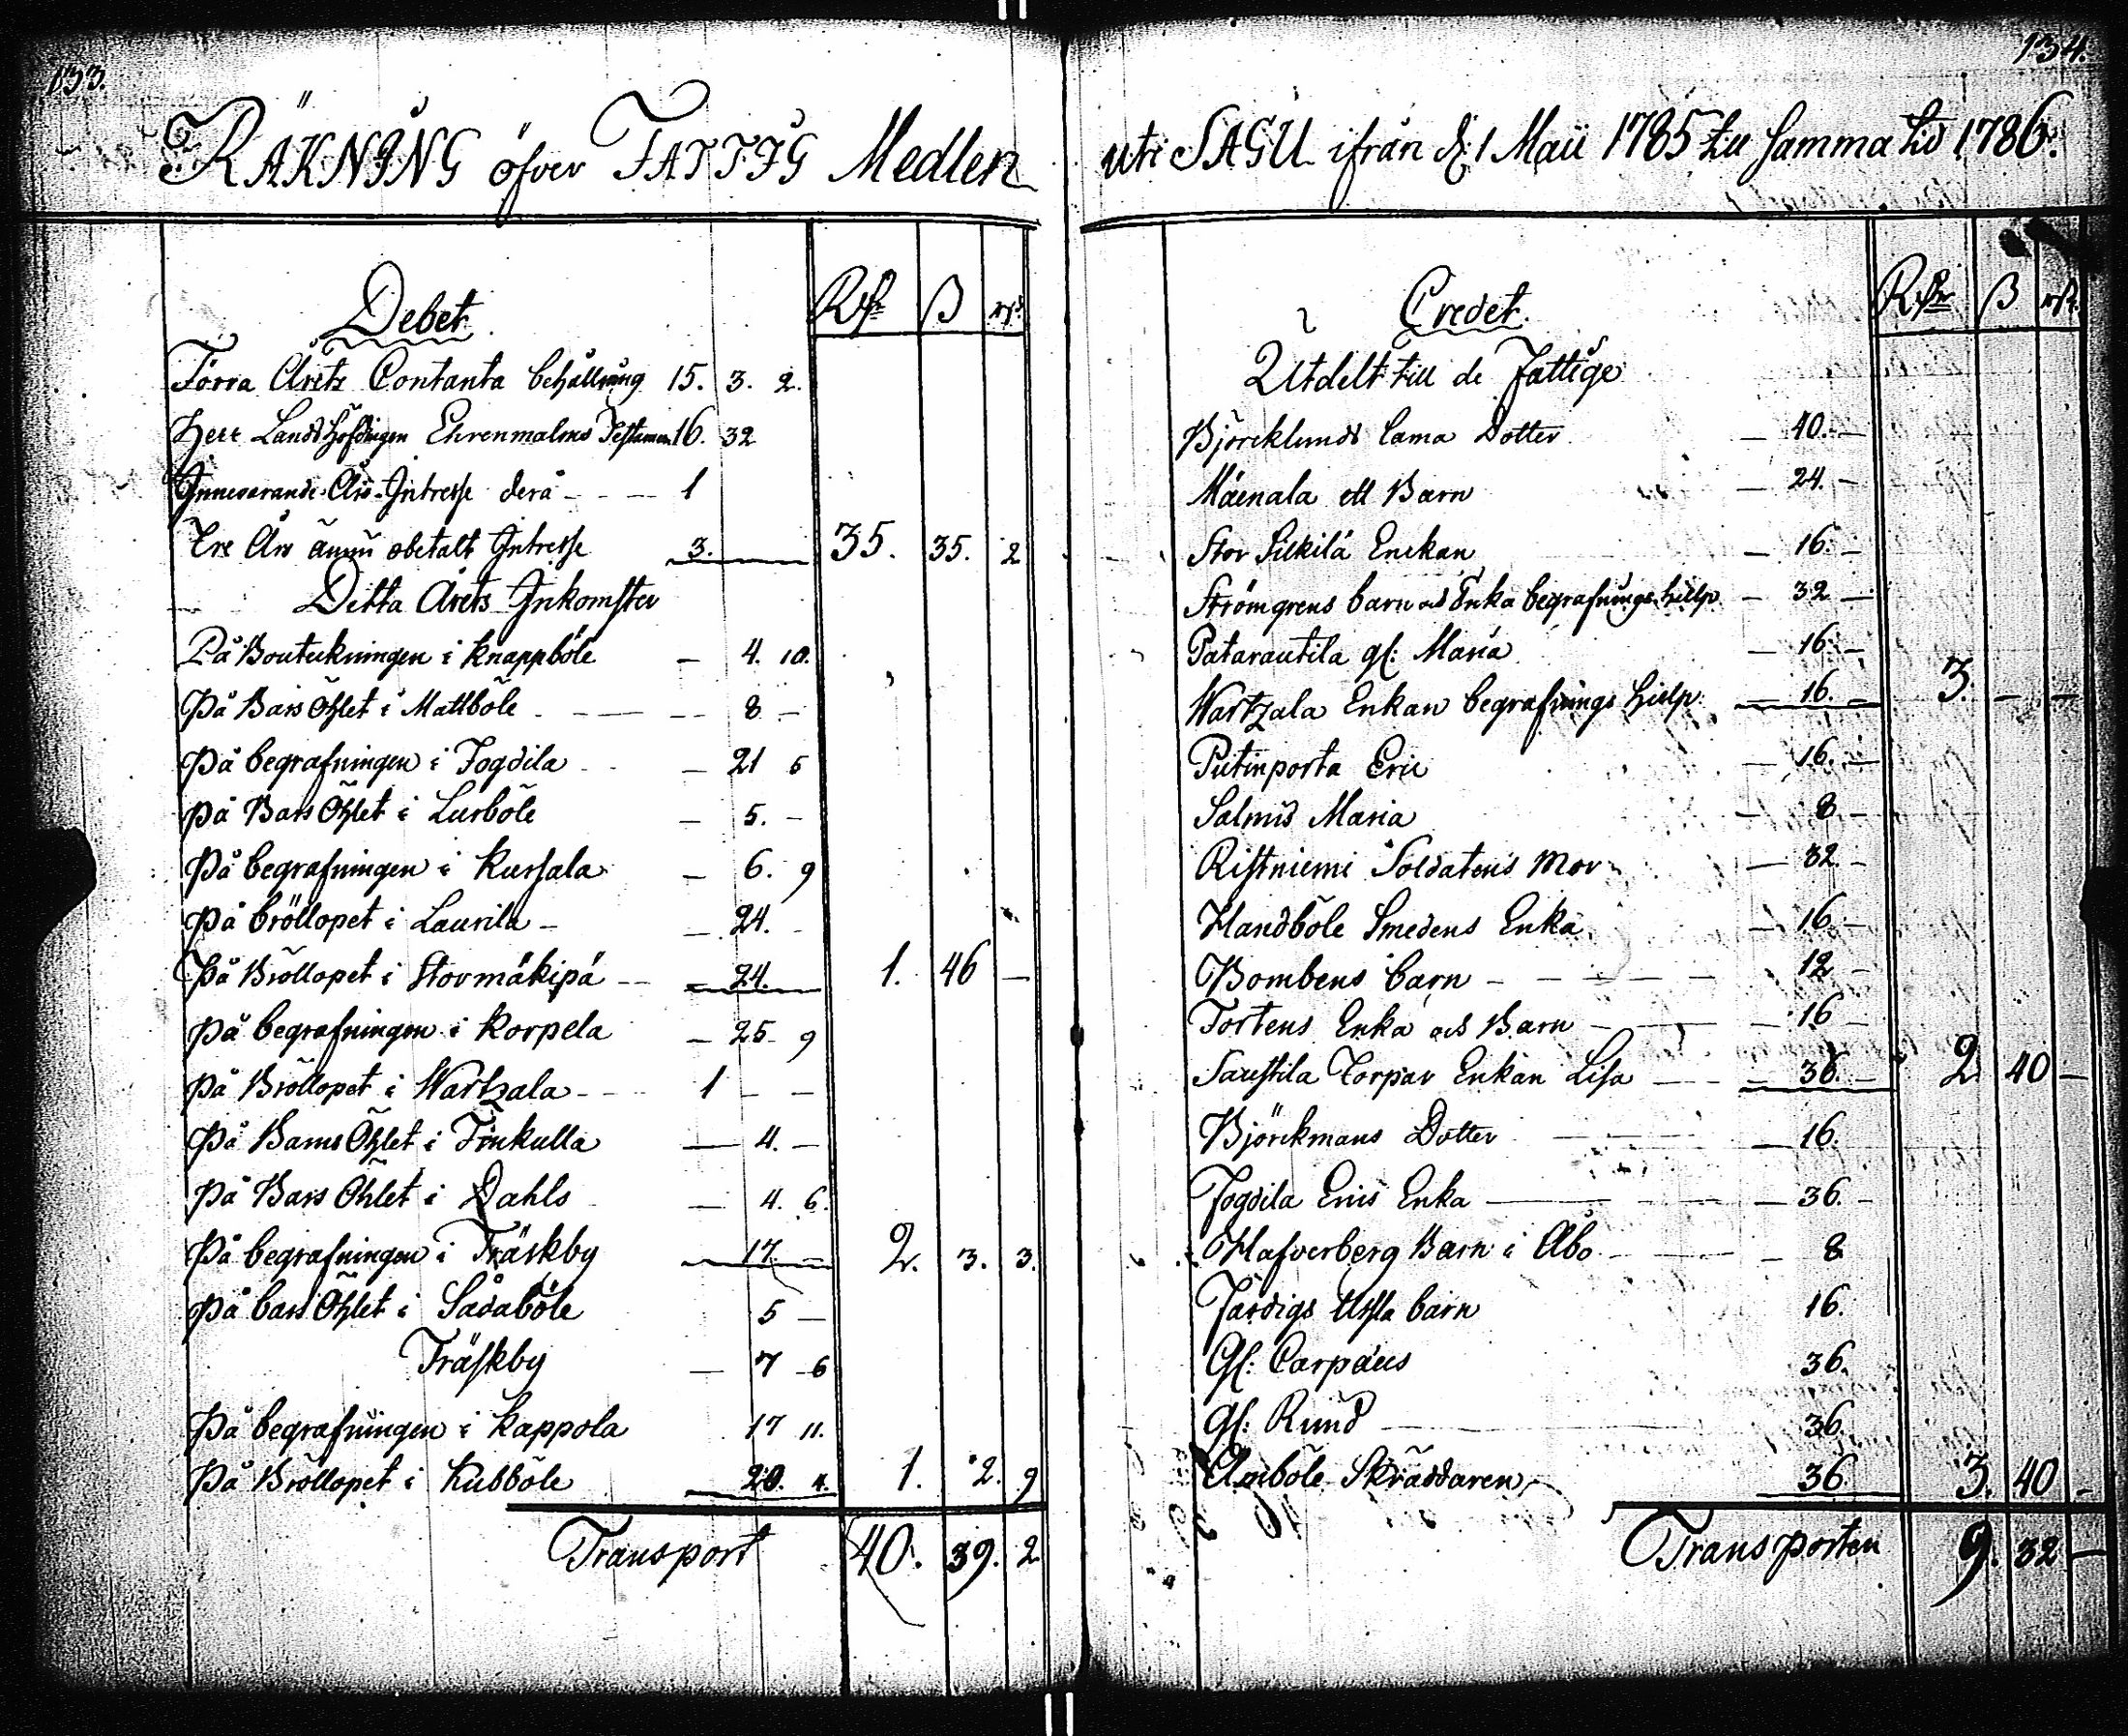 133.
RÄKNING öfver FATTIG Medlen
Debet
Rdr ß rst
Förra Årets Contanta behållning 15. 3. 2.
Herr Landshöfdingen Ehrenmalms Testamen 16. 32
Innevarande Års Intresse derå - - - 1
Tre Års ännu obetalt Intresse 3. 35. 35. 2
Ditta Årets Inkomster
På Bouteckningen i Knappböle — 4. 10.
På Bars Öhlet i Mattböle - — — 8 -
På begrafningen i Fogdila - — 21 5
På Bars Öhlet i Lurböle — 5. -
På begrafningen i Kursala — 6. 9
På bröllopet i Laurila — — 24. -
På Bröllopet i Stormäkipä — — 24. 1. 46 —
På begrafningen i Korpela — 25 9
På Bröllopet i Wartzala - - 1 — —
På Barns Öhlet i Finkulla — 4. —
På Bars Öhlet i Dahls — 4. 6.
På begrafningen i Träskby — 17 — 2. 3. 3.
På bars Öhlet i Sådaböle 5 —
Träskby — 7 - 6
På begrafningen i Kappola 17 11.
På Bröllopet i Kubböle 20. 4. 1. 2. 9
Transport 40. 39. 2
134.
uti SAGU ifrån d. 1 Maii 1785 till samma tid 1786.
Credet.
Rdr ß rst
Utdelt till de Fattige
Björcklunds lama Dotter — 40. —
Mäenala ett Barn — 24. —
Stor Silkilä Enckan — 16. —
Strömgrens barn och Enka begrafnings hielp — 32 —
Patarautila gl: Maria — 16 —
Wartzala Enkan begrafnings hielp — 16. — 3. — —
Putinporta Eric — 16. —
Salmis Maria — 8 —
Ristniemi Soldatens Mor — 32 —
Handböle Smedens Enka — 16 —
Bombens barn - - - 12 —
Tortens Enka och Barn — 16 —
Saustila Torpar Enkan Lisa — — 36. — 2 40 —
Björckmans Dotter — — 16.
Fogdila Erics Enka — — 36. —
Hafverberg Barn i Åbo — — 8
Färdigs barn 16.
Gl: Carpäus 36.
Gl: Rund — 36.
Skräddaren 36 3. 40 -
Transporten 9. 32 —